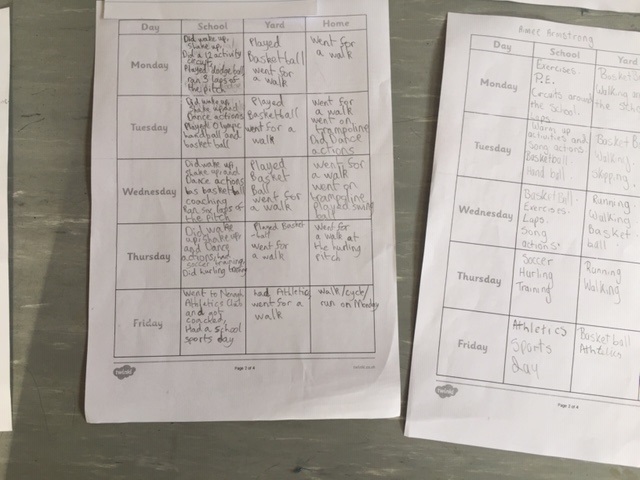 Day School Yard Home
Monday
Did wake up,
shake up,
Did a 12 activity
circuit,
Played dodge ball
ran 3 laps of
the pitch
Played
Basketball
went for
a walk
Went for
a walk
Tuesday
Did wake up
shake up and
Dance actions
Played Olympic
handball and
basket ball
Played
Basketball
went for a
walk
went for
a walk
went on
trampoline
Did Dance
actions
Wednesday
Did wake up,
shake up and
Dance actions
has basketball
coaching
Ran six laps of
the Pitch
Played
Basket
Ball
went for
a walk
went for
a walk
went on
trampoline
Played swing
ball
Thursday
Did wake
up, shake up
and Dance
actions, had
soccer training,
Did hurling
Played Basket
-ball
Went for
a walk
Went for
a walk at
the hurling
pitch
Friday
Went to Nenagh
Athletics Club
and got
coached,
Had a school
sports day
had Athletics
went for a
walk
walk/cycle/
run on Monday
twinkl
Page 2 of 4
twinkl.co.uk
Armstrong
Day School Yard
Monday
Exercises.
P.E.
Circuits around
the School.
Laps
Basketball
Walking
the
Tuesday
Warm up
activities and
Song actions.
Basketball.
Hand ball.
Basket B
Walking.
Skipping.
Wednesday
Basket Ball.
Exercises.
Laps.
Song
actions.
Running.
Walking
Basket
ball.
Thursday
Soccer
Hurling
Training
Running
Walking
Friday
Athletics
Sports
Day
Basketball
Athletics
twinkl
Page 2 of 4